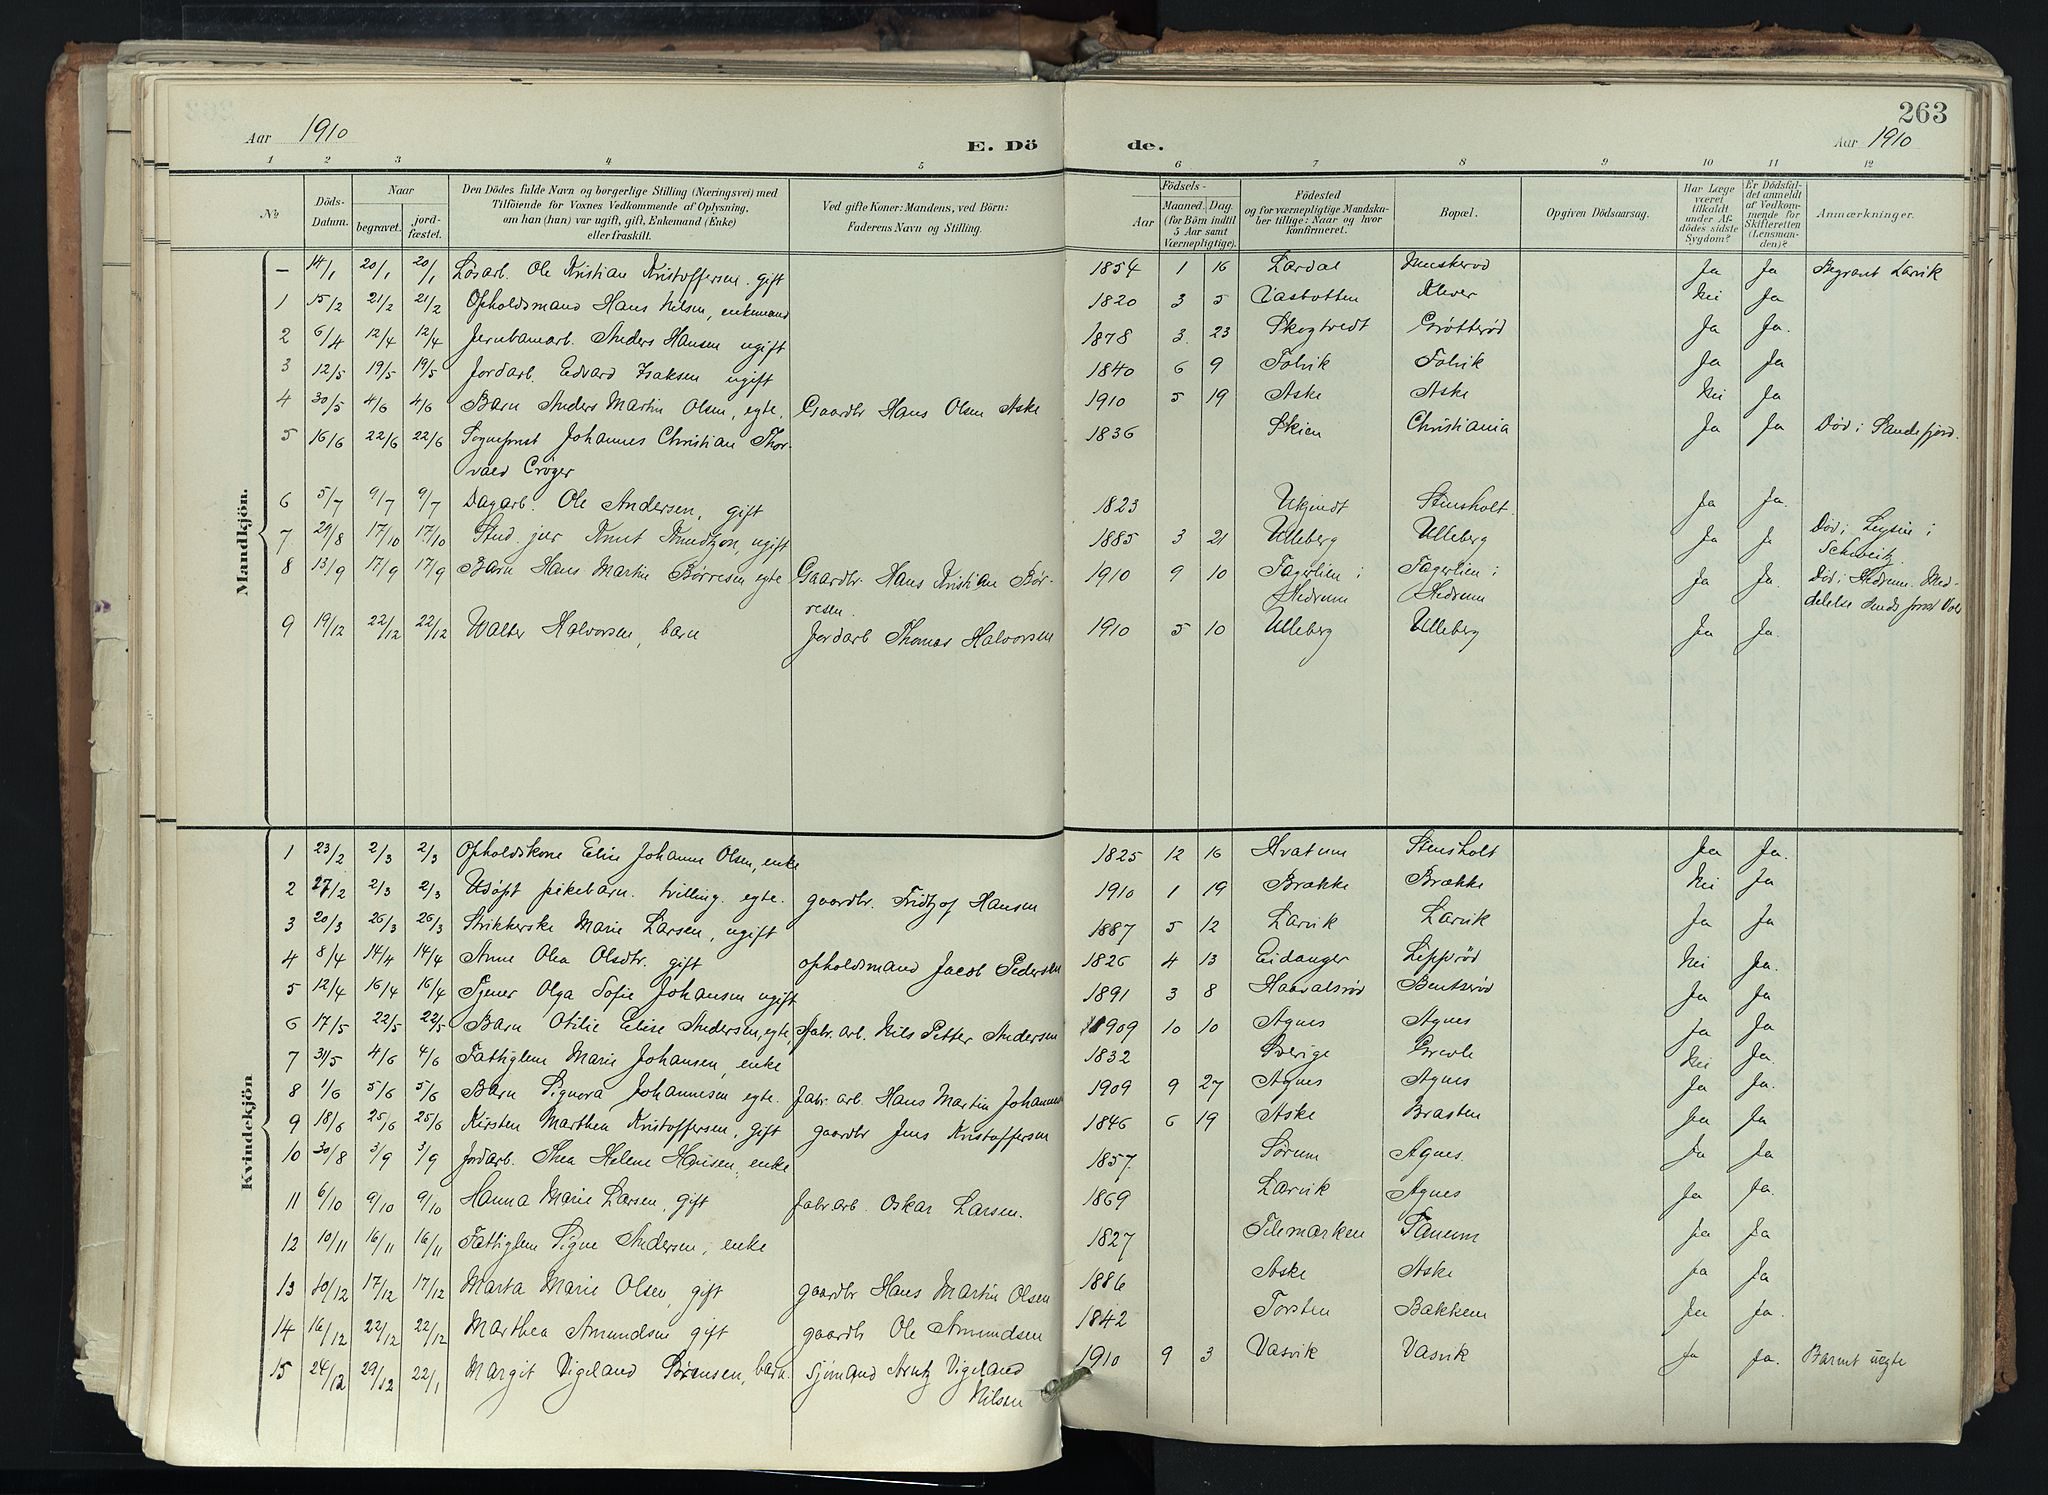 263
Aar 1910 E. Dö de. Aar 1910
1 2 3 4 5 6 7 8 9 10 11 12
No. Döds-Datum. Naar begravet. jordfæstet. Den Dödes fulde Navn og borgerlige Stilling (Næringsvei) med Tilföiende for Voxnes Vedkommende af Oplysning, om han (hun) var ugift, gift, Enkemand (Enke) eller fraskilt. Ved gifte Koner: Mandens, ved Börn: Faderens Navn og Stilling. Födsels- Aar Maaned. Dag (for Börn indtil 5 Aar samt Værnepligtige). Födested og for værnepligtige Mandskaber tillige: Naar og hvor konfirmeret. Bopæl. Opgiven Dödsaarsag. Har Læge været tilkaldt under Afdödes sidste Sygdom? Er Dödsfaldet anmeldt af Vedkommende for Skifteretten (Lensmanden)? Anmærkninger.
Mandkjön.
— 14/1 20/1 20/1 Løsarb. Ole Kristian Kristoffersen. gift 1854 1 16 Lardal Muskerød Ja Ja Begravet Larvik
1 15/2 21/2 21/2 Opholdsmand Hans Nilsen, enkemand 1820 3 5 Vasbotten Klever Nei Ja
2 6/4 12/4 12/4 Jernbanarb. Anders Hansen ugift 1878 3. 23 Skogtvedt Grøtterød Ja Ja.
3 12/5 19/5 19/5 Jordarb. Edvard Isaksen ugift 1840 6 9 Folvik Folvik Ja Ja
4 30/5 4/6 4/6 Barn Anders Martin Olsen, egte, Gaardbr Hans Olsen Aske 1910 5 19 Aske Aske Nei Ja
5 16/6 22/6 22/6 Sogneprest Johannes Christian Thor- 1836 Skien Christiania Ja Ja Død i Sandefjord.
vald Crøger
6 5/7 9/7 9/7 Dagarb. Ole Andersen, gift 1823 Ukjendt Stensholt. Ja Ja.
7 29/8 17/10 17/10 Stud. jur Knut Knudtzon, ugift 1885 3 21 Ulleberg Ulleberg Ja Ja Død i Leysin i
Schweitz
8 13/9 17/9 17/9 Barn Hans Martin Børresen egte Gaardbr. Hans Kristian Bør- 1910 9 10 Fagerlien i Fagerlien i Ja Ja. Død i Hedrum. Med-
resen. Hedrum Hedrum delelse sendt
9 19/12 22/12 22/12 Walter Halvorsen, barn Jordarb Thomas Halvorsen 1910 5 10 Ulleberg Ulleberg Ja Ja.
Kvindekjön
1 23/2 2/3 2/3 Opholdskone Elise Johanne Olsen, enke 1825 12 16 Hvatum Stensholt Ja Ja.
2 27/2 2/3 2/3 Udøpt pikebarn. tvilling. egte. gaardbr. Fridtjof Hansen 1910 1 19 Brække Brække Nei Ja
3 20/3 26/3 26/3 Strikkerske Marie Larsen, ugift 1887 5 12 Larvik Larvik Ja Ja
4 8/4 14/4 14/4 Anne Olea Olsdtr. gift opholdsmand Jacob Pedersen 1826 4 13 Eidanger Leppród Nei Ja.
5 12/4 16/4 16/4 Tjener Olga Sofie Johansen ugift 1891 3 8 Haavalsrød Bentserød Ja Ja
6 17/5 22/5 22/5 Barn Otilie Elise Andersen, egte, Fabr. arb. Nils Petter Andersen 1909 10 10 Agnes Agnes Ja Ja
7 31/5 4/6 4/6 Fattiglem Marie Johansen, enke 1832 Sverige Grevle Nei Ja.
8 1/6 5/6 5/6 Barn Signora Johannesen egte. Fabr. arb. Hans Martin Johannes 1909 9 27 Agnes Agnes Ja Ja.
9 18/6 25/6 25/6 Kirsten Marthea Kristoffersen, gift gaardbr Jens Kristoffersen 1846 6 19 Aske Brasten Ja Ja
10 30/8 3/9 3/9 Jordarb. Thea Helene Hansen, enke 1857. Sørum Agnes. Ja Ja
11 6/10 9/10 9/10 Hanna Marie Larsen, gift Fabr. arb. Oskar Larsen. 1869 Larvik Agnes Ja Ja.
12 10/11 16/11 16/11 Fattiglem Signe Andersen, enke 1827 Telemarken Tanum Ja Ja
13 10/12 17/12 17/12 Marta Marie Olsen, gift gaardbr Hans Martin Olsen 1886 Aske Aske Ja Ja
14 16/12 22/12 22/12 Marthea Amundsen gift gaardb Ole Amundsen 1842 Torsten Bakken Ja Ja.
15 24/12 29/12 22/1 Margit Vigeland Sørensen, barn. Sjømand Arntz Vigeland 1910 9 3 Vasvik Vasvik Ja Ja. Barnet uegte
Nilsen